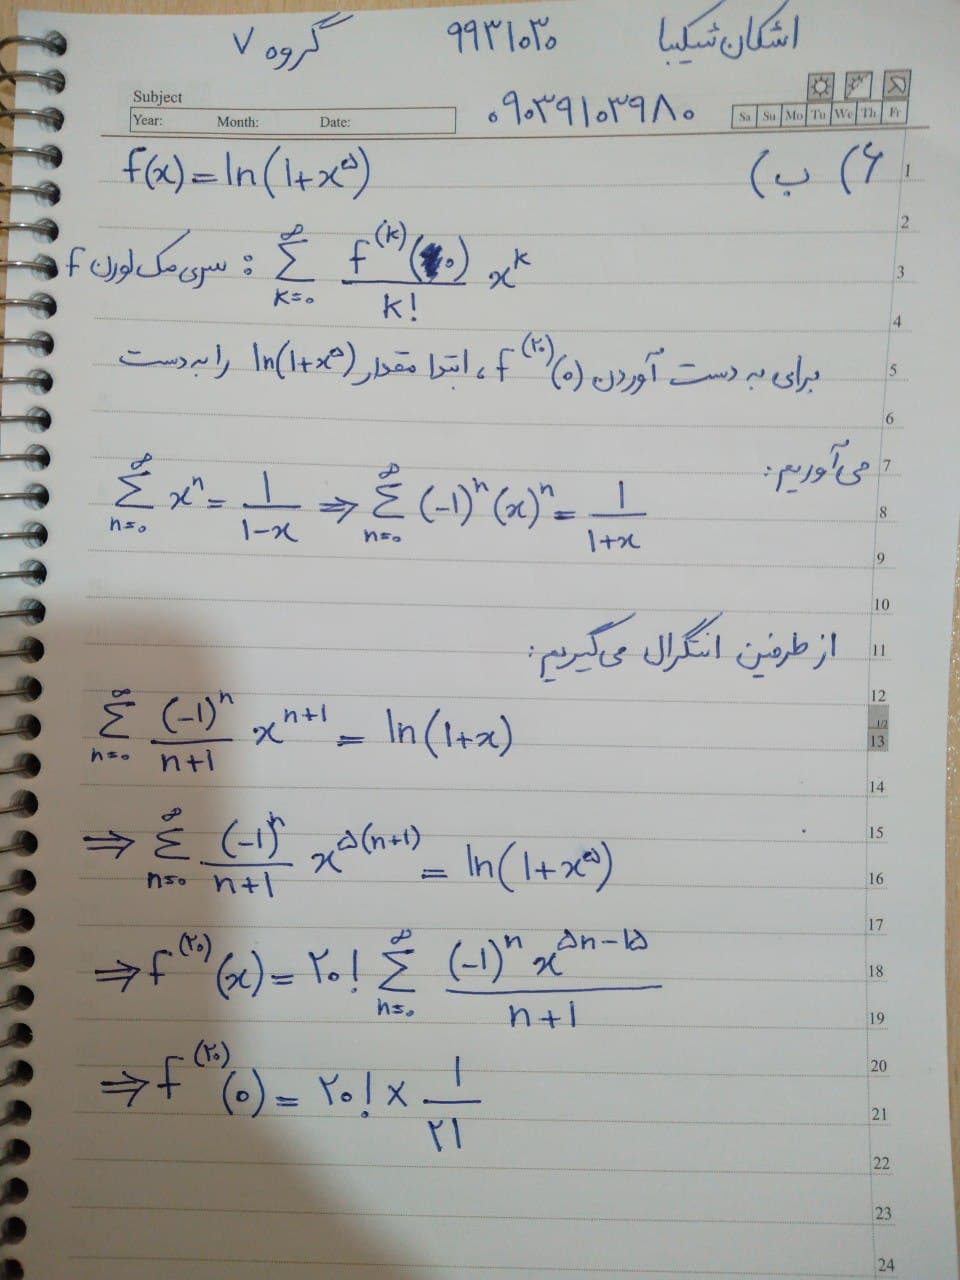 اشکان شکیبا ۹۹۳۱۰۳۰ گروه ۷
Subject
Year: Month: Date:
۰۹۰۳۹۱۰۳۹۸۰
Sa Su Mo Tu We Th Fr
۶) ب) f(x) = ln(1+x^۵)
سری مک لورن f : ∑_{k=0}^{∞} f^{(k)}(۰)/k! x^k
برای به دست آوردن f^{(۲۰)}(۰)، ابتدا مقدار ln(1+x^۵) را به دست
می‌آوریم:
∑_{n=0}^{∞} x^n = 1/(1-x) ⇒ ∑_{n=0}^{∞} (-1)^n (x)^n = 1/(1+x)
از طرفین انتگرال می‌گیریم:
∑_{n=0}^{∞} (-1)^n/(n+1) x^{n+1} = ln(1+x)
⇒ ∑_{n=0}^{∞} (-1)^n/(n+1) x^{۵(n+1)} = ln(1+x^۵)
⇒ f^{(۲۰)}(x) = ۲۰! ∑_{n=0}^{∞} (-1)^n x^{۵n-1۵}/(n+1)
⇒ f^{(۲۰)}(۰) = ۲۰! × ۱/۲۱
1
2
3
4
5
6
7
8
9
10
11
12
1/2
13
14
15
16
17
18
19
20
21
22
23
24